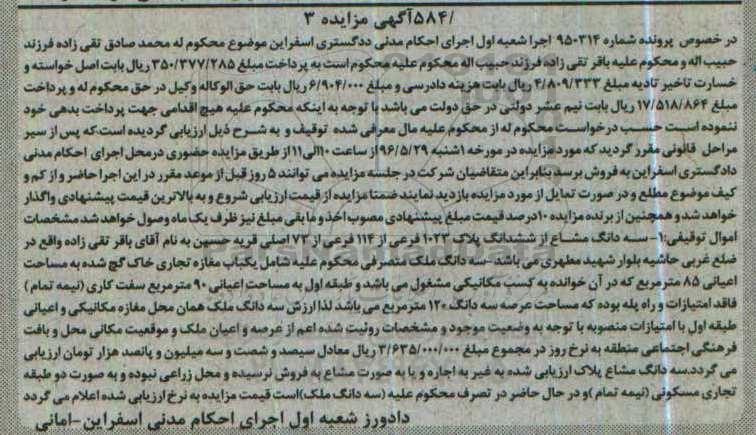 /۵۸۴آگهی مزایده ۳
در خصوص پرونده شماره ۹۵۰۳۱۴ اجرا شعبه اول اجرای احکام مدنی ددگستری اسفراین موضوع محکوم له محمد صادق تقی زاده فرزند
حبیب اله و محکوم علیه باقر تقی زاده فرزند حبیب اله محکوم علیه محکوم است به پرداخت مبلغ ۳۵۰/۳۷۷/۲۸۵ ریال بابت اصل خواسته و
خسارت تاخیر تادیه مبلغ ۴/۸۰۹/۳۳۳ ریال بابت هزینه دادرسی و مبلغ ۶/۹۰۴/۰۰۰ ریال بابت حق الوکاله وکیل در حق محکوم له و پرداخت
مبلغ ۱۷/۵۱۸/۸۶۴ ریال بابت نیم عشر دولتی در حق دولت می باشد با توجه به اینکه محکوم علیه هیچ اقدامی جهت پرداخت بدهی خود
ننموده است حسب درخواست محکوم له از محکوم علیه مال معرفی شده توقیف و به شرح ذیل ارزیابی گردیده است،که پس از سیر
مراحل قانونی مقرر گردید که مورد مزایده در مورخه ۱شنبه ۹۶/۵/۲۹ از ساعت ۱۰الی۱۱ از طریق مزایده حضوری درمحل اجرای احکام مدنی
دادگستری اسفراین به فروش برسد بنابراین متقاضیان شرکت در جلسه مزایده می توانند ۵ روز قبل از موعد مقرر در این اجرا حاضر و از کم و
کیف موضوع مطلع و در صورت تمایل از مورد مزایده بازدید نمایند ضمنا مزایده از قیمت ارزیابی شروع و به بالاترین قیمت پیشنهادی واگذار
خواهد شد و همچنین از برنده مزایده ۱۰درصد قیمت مبلغ پیشنهادی مصوب اخذ و مابقی مبلغ نیز ظرف یک ماه وصول خواهد شد مشخصات
اموال توقیفی:۱- سه دانگ مشاع از ششدانگ پلاک ۱۰۲۳ فرعی از ۱۱۴ فرعی از ۷۳ اصلی قریه حسین به نام آقای باقر تقی زاده واقع در
ضلع غربی حاشیه بلوار شهید مطهری می باشد-سه دانگ ملک متصرفی محکوم علیه شامل یکباب مغازه تجاری خاک گچ شده به مساحت
اعیانی ۸۵ مترمربع که در آن خوانده به کسب مکانیکی مشغول می باشد و طبقه اول به مساحت اعیانی ۹۰ مترمربع سفت کاری (نیمه تمام )
فاقد امتیازات و راه پله بوده که مساحت عرصه سه دانگ ۱۲۰ مترمربع می باشد لذا ارزش سه دانگ ملک همان محل مغازه مکانیکی و اعیانی
طبقه اول با امتیازات منصوبه با توجه به وضعیت موجود و مشخصات روئیت شده اعم از عرصه و اعیان ملک و موقعیت مکانی محل و بافت
فرهنگی اجتماعی منطقه به نرخ روز در مجموع مبلغ ۳/۶۳۵/۰۰۰/۰۰۰ ریال معادل سیصد و شصت و سه میلیون و پانصد هزار تومان ارزیابی
می گردد.سه دانگ مشاع پلاک ارزیابی شده به غیر به اجاره و یا به صورت مشاع به فروش نرسیده و محل زراعی نبوده و به صورت دو طبقه
تجاری مسکونی (نیمه تمام )و در حال حاضر در تصرف محکوم علیه (سه دانگ ملک)است قیمت مزایده به نرخ ارزیابی شده اعلام می گردد
دادورز شعبه اول اجرای احکام مدنی اسفراین-امانی